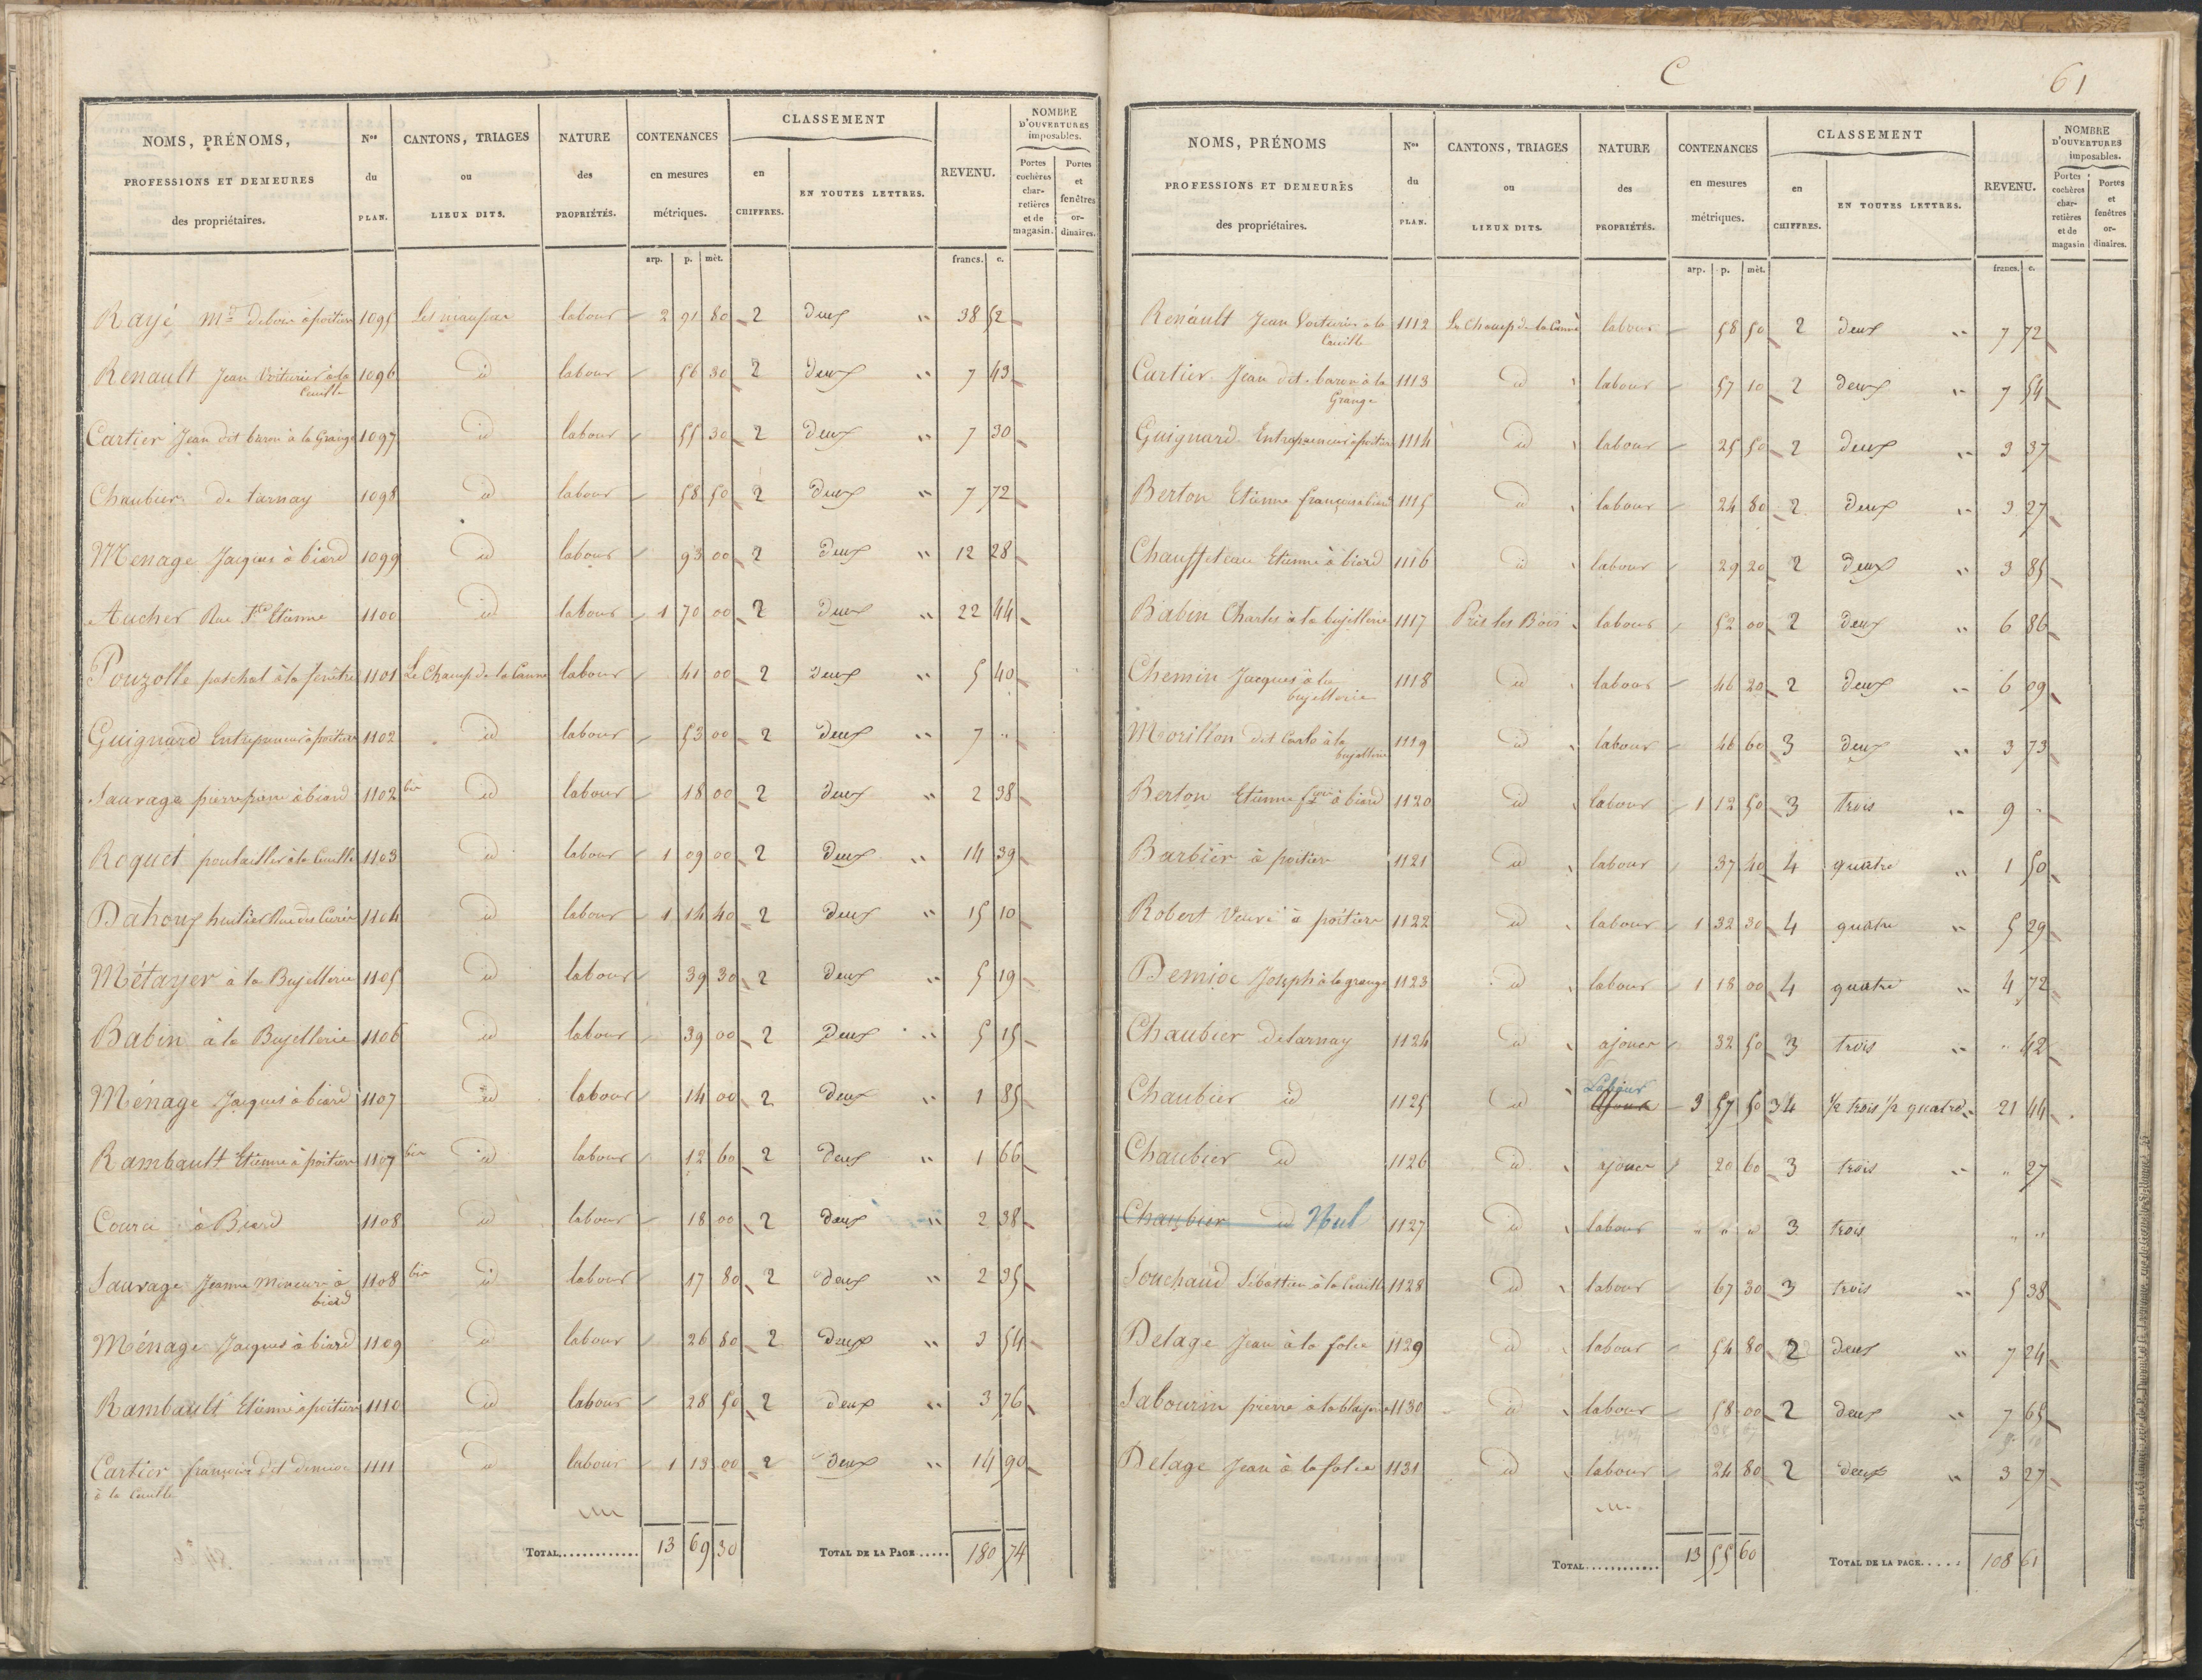 NOMS, PRÉNOMS, PROFESSIONS ET DEMEURES des propriétaires. | Nos du PLAN. | CANTONS, TRIAGES ou LIEUX DITS. | NATURE des PROPRIÉTÉS. | CONTENANCES en mesures métriques. | CLASSEMENT en CHIFFRES. | EN TOUTES LETTRES. | REVENU. | NOMBRE D'OUVERTURES imposables. Portes cochères charretières et de magasin. | Portes et fenêtres ordinaires.
arp. p. mèt. francs. c.
Rayé md à poitiers 1095 labour 2 91 80 2 deux " 38 52
Renault Jean Voiturier à la Cueille 1096 id labour 56 30 2 deux " 7 43
Cartier Jean dit baron à la Grange 1097 id labour 55 30 2 deux " 7 30
Chaubier de tarnay 1098 id labour 58 50 2 deux " 7 72
Menage Jacques à biard 1099 id labour 93 00 2 deux " 12 28
Aucher Rue St Etienne 1100 id labour 1 70 00 2 deux " 22 44
Pouzolle paschal à la fenêtre 1101 Le Champ de la Canne labour 41 00 2 deux " 5 40
Guignard Entrepreneur à poitiers 1102 id labour 53 00 2 deux " 7 "
Sauvage pierre à biard 1102 bis id labour 18 00 2 deux " 2 38
Roquet poulaillier à la Cueille 1103 id labour 1 09 00 2 deux " 14 39
Dahoux huilier Rue des Curés 1104 id labour 1 14 40 2 deux " 15 10
Métayer à la Bujellerie 1105 id labour 39 30 2 deux " 5 19
Babin à la Bujellerie 1106 id labour 39 00 2 deux " 5 15
Ménage Jacques à biard 1107 id labour 14 00 2 deux " 1 85
Rambault Etienne à poitiers 1107 bis id labour 12 60 2 deux " 1 66
Courci à Biard 1108 id labour 18 00 2 deux " 2 38
Sauvage Jeanne Mineure à biard 1108 bis id labour 17 80 2 deux " 2 35
Ménage Jacques à biard 1109 id labour 26 80 2 deux " 3 54
Rambault Etienne à poitiers 1110 id labour 28 50 2 deux " 3 76
Cartier françois dit demioc à la Cueille 1111 id labour 1 13 00 2 deux " 14 90
TOTAL............ 13 69 30 TOTAL DE LA PAGE..... 180 74
C 61
NOMS, PRÉNOMS PROFESSIONS ET DEMEURES des propriétaires. | Nos du PLAN. | CANTONS, TRIAGES ou LIEUX DITS. | NATURE des PROPRIÉTÉS. | CONTENANCES en mesures métriques. | CLASSEMENT en CHIFFRES. | EN TOUTES LETTRES. | REVENU. | NOMBRE D'OUVERTURES imposables. Portes cochères charretières et de magasin | Portes et fenêtres ordinaires.
arp. p. mèt. francs. c.
Renault Jean Voiturier à la Cueille 1112 Le Champ de la Canne labour 58 50 2 deux " 7 72
Cartier Jean dit baron à la Grange 1113 id labour 57 10 2 deux " 7 54
Guignard Entrepreneur à poitiers 1114 id labour 25 50 2 deux " 3 37
Berton Etienne françois à biard 1115 id labour 24 80 2 deux " 3 27
Chauffeteau Etienne à biard 1116 id labour 29 20 2 deux " 3 85
Babin Charles à la bujellerie 1117 Près les Bois labour 52 00 2 deux " 6 86
Chemin Jacques à la bujellerie 1118 id labour 46 20 2 deux " 6 09
Morillon dit Carlo à la bujellerie 1119 id labour 46 60 3 deux " 3 73
Berton Etienne fçois à biard 1120 id labour 1 12 50 3 trois " 9 "
Barbier à poitiers 1121 id labour 37 40 4 quatre " 1 50
Robert Veuve à poitiers 1122 id labour 1 32 30 4 quatre " 5 29
Demioc Joseph à la grange 1123 id labour 1 18 00 4 quatre " 4 72
Chaubier de tarnay 1124 id ajonc 32 50 3 trois " " 42
Chaubier id 1125 id Labour 3 57 50 3 4 1/2 trois 1/2 quatre " 21 44
Chaubier id 1126 id ajonc 20 60 3 trois " " 27
Chaubier id Nul 1127 id labour " " " 3 trois " "
Souchaud Sébastien à la Cueille 1128 id labour 67 30 3 trois " 5 38
Delage Jean à la folie 1129 id labour 54 80 2 deux " 7 24
Sabourin pierre 1130 id labour 58 00 2 deux " 7 65
Delage Jean à la folie 1131 id labour 24 80 2 deux " 3 27
TOTAL............ 13 55 60 TOTAL DE LA PAGE..... 108 61